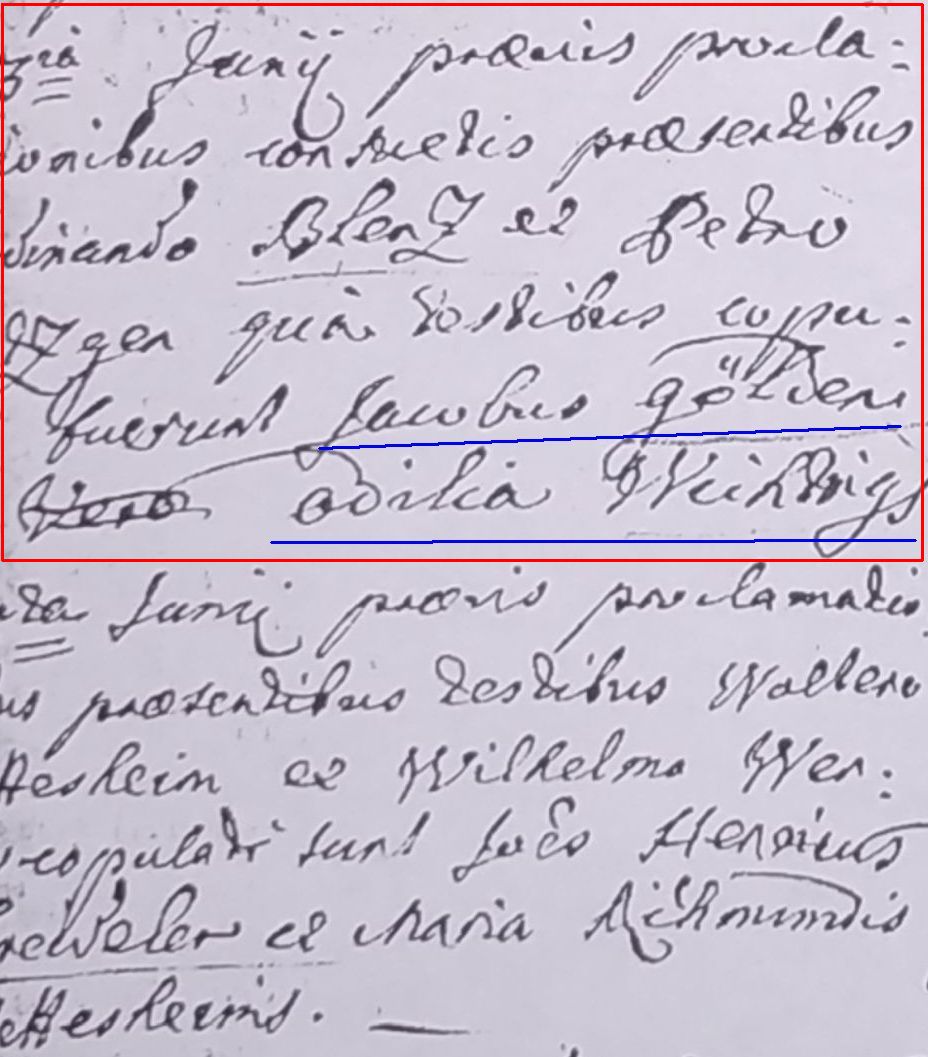 3tia Junij praeviis procla:
ionibus consuetis praesentibus
dinando Blenz et Petro
gen quam testibus copu:
fuerunt Jacobus gölden
odilia Weihrings
ta Junij praeviis proclamatio
us praesentibus testibus Woltero
Hesheim et Wilhelmo Wer:
copulati sunt Joes Henricus
et Maria Richmundis
Hesheims. —